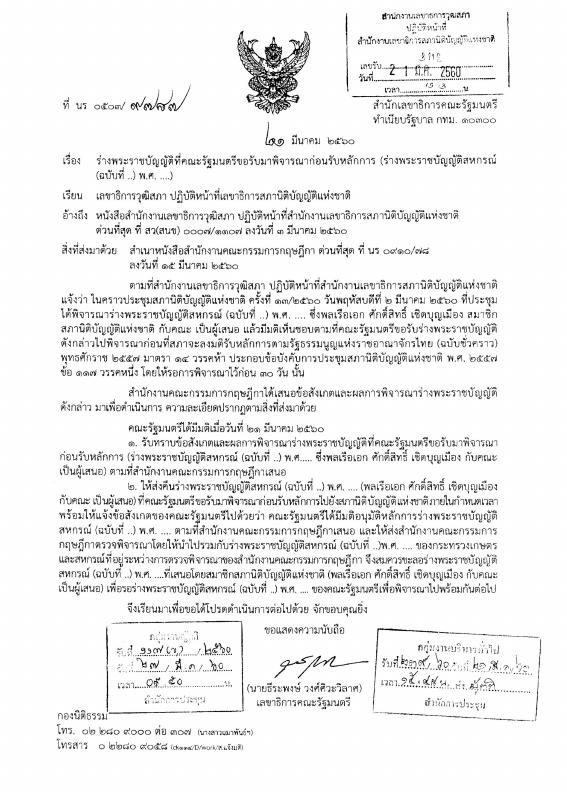 สำนักงานเลขาธิการวุฒิสภา
ปฏิบัติหน้าที่
สำนักงานเลขาธิการสภานิติบัญญัติแห่งชาติ
เลขรับ
วันที่ 21 มี.ค. 2560
เวลา น.
ที่ นร ๐๕๐๓/๙๗๘๗
สำนักเลขาธิการคณะรัฐมนตรี
ทำเนียบรัฐบาล กทม. ๑๐๓๐๐
๒๑ มีนาคม ๒๕๖๐
เรื่อง ร่างพระราชบัญญัติที่คณะรัฐมนตรีขอรับมาพิจารณาก่อนรับหลักการ (ร่างพระราชบัญญัติสหกรณ์
(ฉบับที่ ..) พ.ศ. ....)
เรียน เลขาธิการวุฒิสภา ปฏิบัติหน้าที่เลขาธิการสภานิติบัญญัติแห่งชาติ
อ้างถึง หนังสือสำนักงานเลขาธิการวุฒิสภา ปฏิบัติหน้าที่สำนักงานเลขาธิการสภานิติบัญญัติแห่งชาติ
ด่วนที่สุด ที่ สว(สนช) ๐๐๐๗/๑๑๐๗ ลงวันที่ ๓ มีนาคม ๒๕๖๐
สิ่งที่ส่งมาด้วย สำเนาหนังสือสำนักงานคณะกรรมการกฤษฎีกา ด่วนที่สุด ที่ นร ๐๙๑๐/๗๘
ลงวันที่ ๑๕ มีนาคม ๒๕๖๐
ตามที่สำนักงานเลขาธิการวุฒิสภา ปฏิบัติหน้าที่สำนักงานเลขาธิการสภานิติบัญญัติแห่งชาติ
แจ้งว่า ในคราวประชุมสภานิติบัญญัติแห่งชาติ ครั้งที่ ๑๓/๒๕๖๐ วันพฤหัสบดีที่ ๒ มีนาคม ๒๕๖๐ ที่ประชุม
ได้พิจารณาร่างพระราชบัญญัติสหกรณ์ (ฉบับที่ ..) พ.ศ. .... ซึ่งพลเรือเอก ศักดิ์สิทธิ์ เชิดบุญเมือง สมาชิก
สภานิติบัญญัติแห่งชาติ กับคณะ เป็นผู้เสนอ แล้วมีมติเห็นชอบตามที่คณะรัฐมนตรีขอรับร่างพระราชบัญญัติ
ดังกล่าวไปพิจารณาก่อนที่สภาจะลงมติรับหลักการตามรัฐธรรมนูญแห่งราชอาณาจักรไทย (ฉบับชั่วคราว)
พุทธศักราช ๒๕๕๗ มาตรา ๑๔ วรรคห้า ประกอบข้อบังคับการประชุมสภานิติบัญญัติแห่งชาติ พ.ศ. ๒๕๕๗
ข้อ ๑๑๗ วรรคหนึ่ง โดยให้รอการพิจารณาไว้ก่อน ๓๐ วัน นั้น
สำนักงานคณะกรรมการกฤษฎีกาได้เสนอข้อสังเกตและผลการพิจารณาร่างพระราชบัญญัติ
ดังกล่าว มาเพื่อดำเนินการ ความละเอียดปรากฏตามสิ่งที่ส่งมาด้วย
คณะรัฐมนตรีได้มีมติเมื่อวันที่ ๒๑ มีนาคม ๒๕๖๐
๑. รับทราบข้อสังเกตและผลการพิจารณาร่างพระราชบัญญัติที่คณะรัฐมนตรีขอรับมาพิจารณา
ก่อนรับหลักการ (ร่างพระราชบัญญัติสหกรณ์ (ฉบับที่ ..) พ.ศ..... ซึ่งพลเรือเอก ศักดิ์สิทธิ์ เชิดบุญเมือง กับคณะ
เป็นผู้เสนอ) ตามที่สำนักงานคณะกรรมการกฤษฎีกาเสนอ
๒. ให้ส่งคืนร่างพระราชบัญญัติสหกรณ์ (ฉบับที่ ..) พ.ศ. .... (พลเรือเอก ศักดิ์สิทธิ์ เชิดบุญเมือง
กับคณะ เป็นผู้เสนอ) ที่คณะรัฐมนตรีขอรับมาพิจารณาก่อนรับหลักการไปยังสภานิติบัญญัติแห่งชาติภายในกำหนดเวลา
พร้อมให้แจ้งข้อสังเกตของคณะรัฐมนตรีไปด้วยว่า คณะรัฐมนตรีได้มีมติอนุมัติหลักการร่างพระราชบัญญัติ
สหกรณ์ (ฉบับที่ ..) พ.ศ. .... ตามที่สำนักงานคณะกรรมการกฤษฎีกาเสนอ และให้ส่งสำนักงานคณะกรรมการ
กฤษฎีกาตรวจพิจารณาโดยให้นำไปรวมกับร่างพระราชบัญญัติสหกรณ์ (ฉบับที่ ..)พ.ศ. .... ของกระทรวงเกษตร
และสหกรณ์ที่อยู่ระหว่างการตรวจพิจารณาของสำนักงานคณะกรรมการกฤษฎีกา จึงสมควรชะลอร่างพระราชบัญญัติ
สหกรณ์ (ฉบับที่ ..) พ.ศ. ....ที่เสนอโดยสมาชิกสภานิติบัญญัติแห่งชาติ (พลเรือเอก ศักดิ์สิทธิ์ เชิดบุญเมือง กับคณะ
เป็นผู้เสนอ) เพื่อรอร่างพระราชบัญญัติสหกรณ์ (ฉบับที่ ..) พ.ศ. .... ของคณะรัฐมนตรีเพื่อพิจารณาไปพร้อมกันต่อไป
จึงเรียนมาเพื่อขอได้โปรดดำเนินการต่อไปด้วย จักขอบคุณยิ่ง
ขอแสดงความนับถือ
(นายธีระพงษ์ วงศ์ศิวะวิลาศ)
เลขาธิการคณะรัฐมนตรี
กลุ่มงานญัตติ
วันที่ ๒๗ / มี.ค. / ๖๐
เวลา ๐๙.๕๐ น.
สำนักการประชุม
กลุ่มงานบริหารทั่วไป
สำนักการประชุม
กองนิติธรรม
โทร. ๐๒ ๒๘๐ ๙๐๐๐ ต่อ ๓๐๗
โทรสาร ๐ ๒๒๘๐ ๙๐๕๘